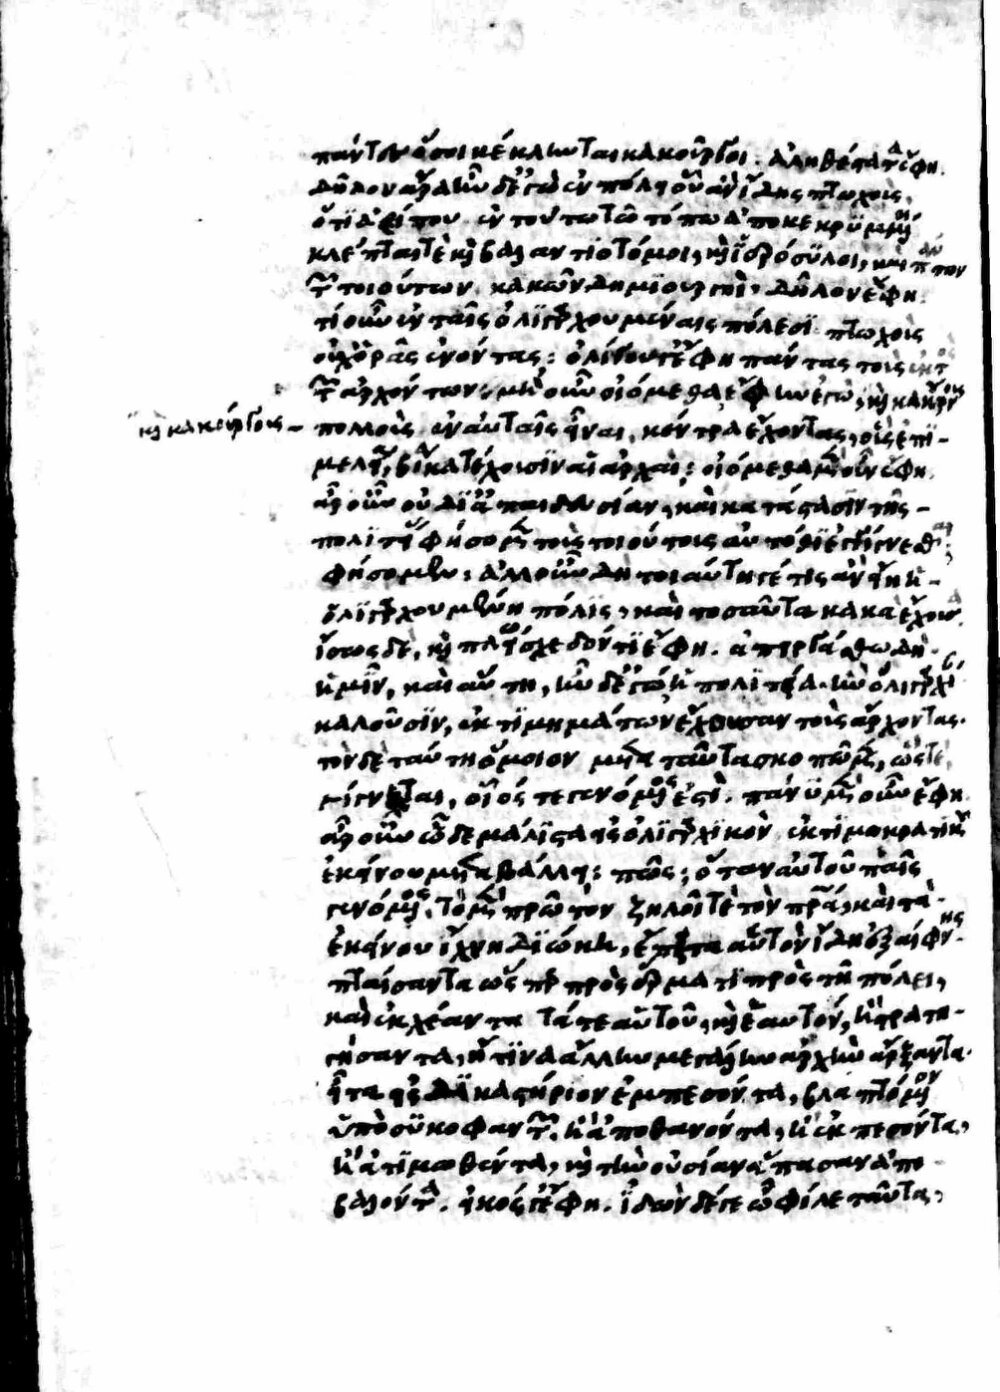 πάντων ὅσοι κέκλωνται κακοῦργοι. ἀληθέστατα ἔφη.
δῆλον ἄρα ἦν δ' ἐγὼ ἐν πόλει οὗ ἂν ἴδῃς πτωχοὺς,
ὅτι εἰσί που ἐν τούτω τῶ τόπω ἀποκεκρυμμένοι
κλέπται τὲ καὶ βαλαντιοτόμοι, καὶ ἱερόσυλοι, καὶ πάντων
τῶν τοιούτων κακῶν δημιουργοὶ. δῆλον ἔφη.
τί οὖν ἐν ταῖς ὀλιγαρχουμέναις πόλεσι πτωχοὺς
οὐχ ὁρᾶς ἐνόντας; ὀλίγου γ' ἔφη πάντας τοὺς ἐκτὸς
τῶν ἀρχόντων. μὴ οὖν οἰόμεθα ἔφην ἐγὼ, καὶ κακούργους
καὶ κακούργους –
πολλοὺς ἐν αὐταῖς εἶναι, κέντρα ἔχοντας, οὓς ἐπι-
μελεία, βία κατέχουσιν αἱ ἀρχαὶ; οἰόμεθα μὲν οὖν ἔφη.
ἆρ' οὖν οὐ δι' ἀπαιδευσίαν, καὶ κατάστασιν τῆς
πολιτείας φήσομεν τοὺς τοιούτους αὐτόθι ἐγγίγνεσθαι;
φήσομεν; ἀλλ' οὖν δὴ τοιαύτη γέ τις ἂν εἴη ἡ
ὀλιγαρχουμένη πόλις, καὶ τοσαῦτα κακὰ ἔχουσα.
ἴσως δὲ, καὶ πλείω σχεδόν τι ἔφη. ἀπειργάσθω δὴ
ἡμῖν, καὶ αὕτη, ἦν δ' ἐγὼ ἡ πολιτεία ἣν ὀλιγαρχίαν
καλοῦσιν, ἐκ τιμημάτων ἔχουσαν τοὺς ἄρχοντας.
τὸν δὲ ταύτη ὅμοιον μετὰ ταῦτα σκοπῶμεν, ὥς τε
γίγνεται, οἷός τε γενόμενος ἐστὶ. πάνυ μὲν οὖν ἔφη.
ἆρ' οὖν ὧδε μάλιστα εἰς ὀλιγαρχικὸν ἐκ τιμοκρατικοῦ
ἐκείνου μεταβάλλει; πῶς; ὅταν αὐτοῦ παῖς
γενόμενος, τὸ μὲν πρῶτον ζηλοῖ τὲ τὸν πατέρα, καὶ τὰ
ἐκείνου ἴχνη διώκη, ἔπειτα αὐτὸν ἴδη ἐξαίφνης
πταίσαντα ὥσπερ πρὸς ἕρματι πρὸς τῆ πόλει,
καὶ ἐκχέαντα τά τε αὑτοῦ, καὶ ἑαυτόν, ἢ στρατη-
γήσαντα, ἤ τινα ἄλλην μεγάλην ἀρχὴν ἄρξαντα.
εἶτα εἰς δικαστήριον ἐμπεσόντα, βλαπτόμενον
ὑπὸ συκοφαντῶν, ἢ ἀποθανόντα, ἢ ἐκπεσόντα,
ἢ ἀτιμωθέντα, καὶ τὴν οὐσίαν ἅπασαν ἀπο-
βαλόντα. εἰκός γ' ἔφη. ἰδὼν δέ γε ὦ φίλε ταῦτα,